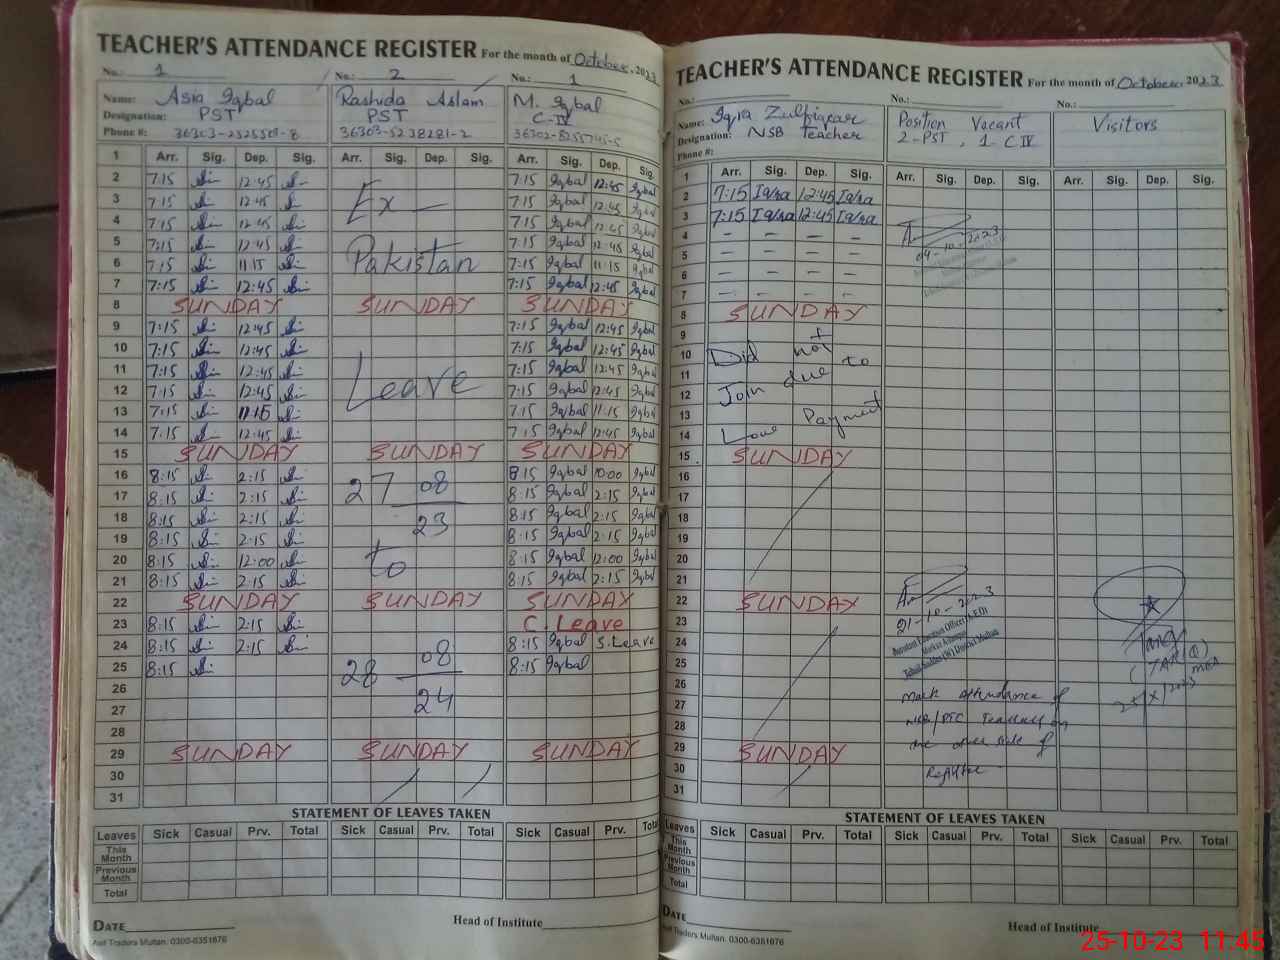 TEACHER'S ATTENDANCE REGISTER For the month of October, 2023
No.: 1 No.: 2 No.: 1
Name: Asia Iqbal Rashida Aslam M. Iqbal
Designation: PST PST C-IV
Phone #:
1 Arr. Sig. Dep. Sig. Arr. Sig. Dep. Sig. Arr. Sig. Dep. Sig.
2 7:15 12:45 7:15 Iqbal 12:45 Iqbal
3 7:15 12:45 Ex- 7:15 Iqbal 12:45 Iqbal
4 7:15 12:45 7:15 Iqbal 12:45 Iqbal
5 7:15 12:45 7:15 Iqbal 12:45 Iqbal
6 7:15 11:15 Pakistan 7:15 Iqbal 11:15 Iqbal
7 7:15 12:45 7:15 Iqbal 12:45 Iqbal
8 SUNDAY SUNDAY SUNDAY
9 7:15 12:45 7:15 Iqbal 12:45 Iqbal
10 7:15 12:45 7:15 Iqbal 12:45 Iqbal
11 7:15 12:45 7:15 Iqbal 12:45 Iqbal
12 7:15 12:45 Leave 7:15 Iqbal 12:45 Iqbal
13 7:15 11:15 7:15 Iqbal 11:15 Iqbal
14 7:15 12:45 7:15 Iqbal 12:45 Iqbal
15 SUNDAY SUNDAY SUNDAY
16 8:15 2:15 8:15 Iqbal 10:00 Iqbal
17 8:15 2:15 27 08 8:15 Iqbal 2:15 Iqbal
18 8:15 2:15 23 8:15 Iqbal 2:15 Iqbal
19 8:15 2:15 8:15 Iqbal 2:15 Iqbal
20 8:15 12:00 to 8:15 Iqbal 12:00 Iqbal
21 8:15 2:15 8:15 Iqbal 2:15 Iqbal
22 SUNDAY SUNDAY SUNDAY
23 8:15 2:15 C. Leave
24 8:15 2:15 08 8:15 Iqbal S. Leave
25 8:15 28 8:15 Iqbal
26
27 24
28
29 SUNDAY SUNDAY SUNDAY
30
31
STATEMENT OF LEAVES TAKEN
Leaves Sick Casual Prv. Total Sick Casual Prv. Total Sick Casual Prv. Total
This Month
Previous Month
Total
DATE Head of Institute
Asif Traders Multan: 0300-6351676
TEACHER'S ATTENDANCE REGISTER For the month of October, 2023
No.: No.: No.:
Name: Iqra Zulfiqar Position Vacant Visitors
Designation: NSB Teacher 2-PST, 1 C IV
Phone #:
1 Arr. Sig. Dep. Sig. Arr. Sig. Dep. Sig. Arr. Sig. Dep. Sig.
2 7:15 Iqra 12:45 Iqra
3 7:15 Iqra 12:45 Iqra
4 - - - - 04-10-2023
5 - - - -
6 - - - -
7 - - - -
8 SUNDAY
9
10 Did not
11 Join due to
12
13 Payment
14
15 SUNDAY
16
17
18
19
20
21
22 SUNDAY 21-10-2023
23 Assistant Education Officer (AEO)
24 Markaz
25 District Multan
26 Mark attendance of
27 NSB/PTC Teachers on
28 the other side of
29 SUNDAY
30 Register
31
STATEMENT OF LEAVES TAKEN
Leaves Sick Casual Prv. Total Sick Casual Prv. Total Sick Casual Prv. Total
This Month
Previous Month
Total
DATE Head of Institute
Asif Traders Multan: 0300-6351676
25-10-23 11:45